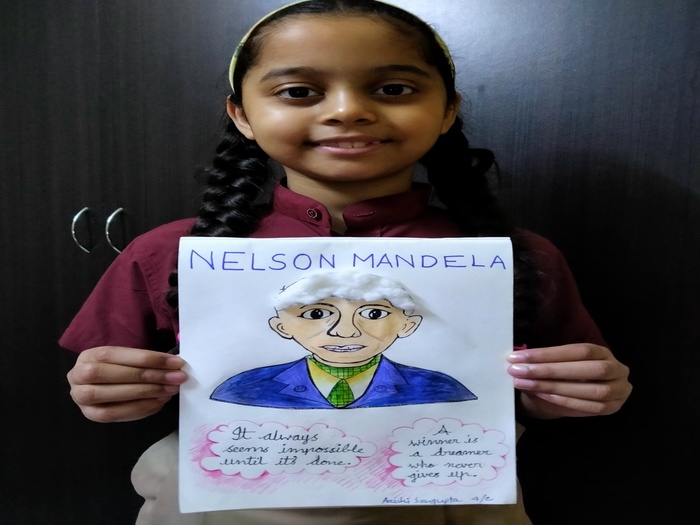 NELSON MANDELA
It always
seems impossible
until it's done.
A
winner is
a dreamer
who never
gives up.
4/c